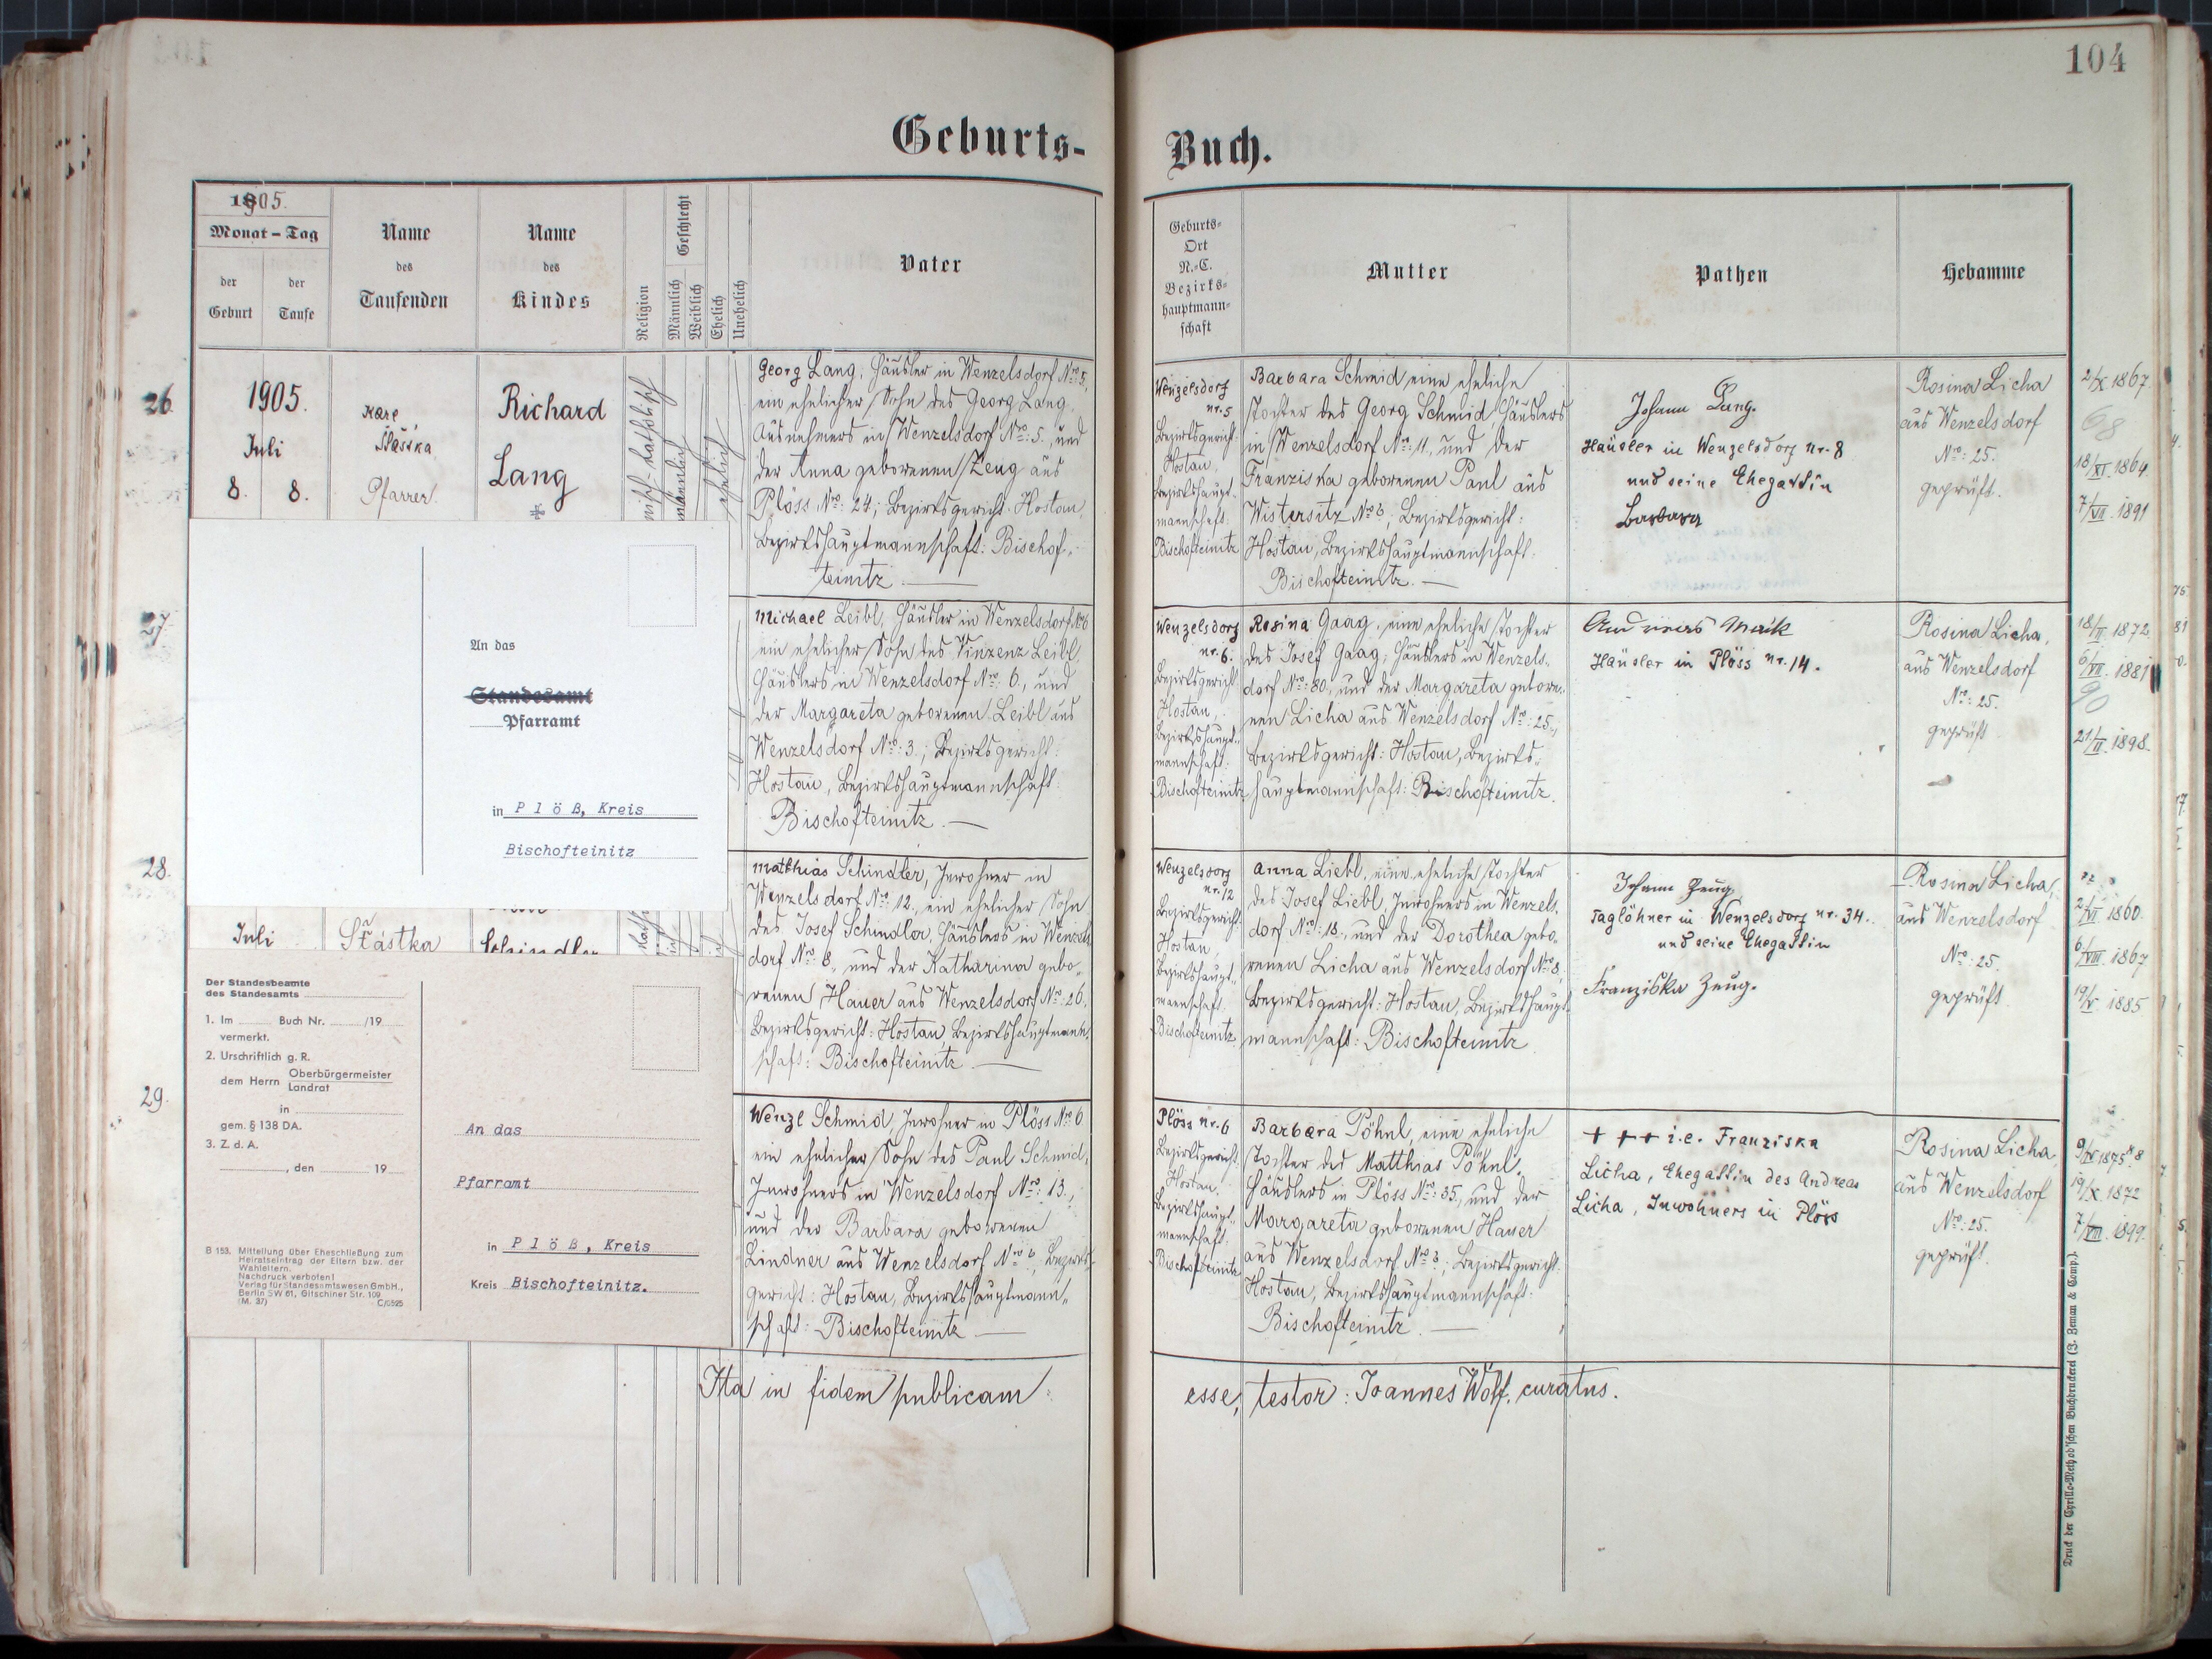 104
Geburts-
Buch.
1905.
Monat - Tag
der
Geburt
der
Taufe
Name
des
Taufenden
Name
des
Kindes
Religion
Geschlecht
Männlich
Weiblich
Ehelich
Unehelich
Vater
Geburts-
Ort
N.-C.
Bezirks-
hauptmann-
schaft
Mutter
Pathen
Hebamme
26.
1905.
Juli
8. 8.
Karl
Šťastka
Pfarrer
Richard
Lang
männlich
ehelich
Georg Lang, Häusler in Wenzelsdorf Nro: 5,
ein ehelicher Sohn des Georg Lang,
Ausnehmers in Wenzelsdorf Nro: 5., und
der Anna geborenen Zeug aus
Plöss Nro: 24; Bezirksgericht Hostau,
Bezirkshauptmannschaft: Bischof-
teinitz.
Wenzelsdorf
nr. 5
Bezirksgericht:
Hostau,
Bezirkshaupt-
mannschaft:
Bischofteinitz
Barbara Schmid, eine eheliche
Tochter des Georg Schmid, Häuslers
in Wenzelsdorf Nro: 11, und der
Franziska geborenen Paul aus
Wistersitz Nro 6; Bezirksgericht:
Hostau, Bezirkshauptmannschaft:
Bischofteinitz.
Johann Lang.
Häusler in Wenzelsdorf nr. 8
und seine Ehegattin
Barbara
Rosina Licha
aus Wenzelsdorf
Nro: 25.
geprüft.
2/X 1867.
68
18/XI. 1864.
7/VII. 1891
27.
Michael Leibl, Häusler in Wenzelsdorf Nro 6
ein ehelicher Sohn des Vinzenz Leibl,
Häuslers in Wenzelsdorf Nro: 6., und
der Margareta geborenen Leibl aus
Wenzelsdorf Nro: 3.; Bezirksgericht:
Hostau, Bezirkshauptmannschaft:
Bischofteinitz.
Wenzelsdorf
nr. 6.
Bezirksgericht
Hostau,
Bezirkshaupt-
mannschaft:
Bischofteinitz
Rosina Gaag, eine eheliche Tochter
des Josef Gaag, Häuslers in Wenzels-
dorf Nro: 80., und der Margareta gebore-
nen Licha aus Wenzelsdorf Nro: 25.,
Bezirksgericht: Hostau, Bezirks-
hauptmannschaft: Bischofteinitz.
Andreas
Häusler in Plöss nr. 14.
Rosina Licha,
aus Wenzelsdorf
Nro: 25.
geprüft
18/II. 1872.
6/VII. 1881
90
21/II. 1898.
An das
Standesamt
Pfarramt
in P l ö ß, Kreis
Bischofteinitz
28.
Juli
Šťástka
Schindler
Matthias Schindler, Inwohner in
Wenzelsdorf Nro: 12., ein ehelicher Sohn
des Josef Schindler, Häuslers in Wenzels-
dorf Nro: 8., und der Katharina gebo-
renen Hauer aus Wenzelsdorf Nro: 26.
Bezirksgericht: Hostau, Bezirkshauptmann-
schaft: Bischofteinitz.
Wenzelsdorf
nr. 12
Bezirksgericht:
Hostau,
Bezirkshaupt-
mannschaft:
Bischofteinitz.
Anna Liebl, eine eheliche Tochter
des Josef Liebl, Inwohners in Wenzels-
dorf Nro: 18., und der Dorothea gebo-
renen Licha aus Wenzelsdorf Nro 8,
Bezirksgericht: Hostau, Bezirkshaupt-
mannschaft: Bischofteinitz.
Johann Zeug,
Taglöhner in Wenzelsdorf nr. 34.
und seine Ehegattin
Franziska Zeug.
Rosina Licha,
aus Wenzelsdorf
Nro: 25.
geprüft
2/VI 1860.
6/VIII. 1867
19/V. 1885
Der Standesbeamte
des Standesamts
1. Im Buch Nr. /19
vermerkt.
2. Urschriftlich g. R.
dem Herrn Oberbürgermeister
Landrat
in
gem. § 138 DA.
3. Z. d. A.
, den 19
B 153. Mitteilung über Eheschließung zum
Heiratseintrag der Eltern bzw. der
Wahleltern.
Nachdruck verboten!
Verlag für Standesamtswesen GmbH.,
Berlin SW 61, Gitschiner Str. 109
(M. 37) C/0525
An das
Pfarramt
in P l ö ß, Kreis
Kreis Bischofteinitz.
29.
Wenzl Schmid, Inwohner in Plöss Nro 6
ein ehelicher Sohn des Paul Schmid,
Inwohners in Wenzelsdorf Nro: 13.,
und der Barbara geborenen
Lindner aus Wenzelsdorf Nro 6., Bezirks-
gericht: Hostau, Bezirkshauptmann-
schaft: Bischofteinitz
Plöss nr. 6
Bezirksgericht:
Hostau.
Bezirkshaupt-
mannschaft:
Bischofteinitz
Barbara Pöhnl, eine eheliche
Tochter des Matthias Pöhnl,
Häuslers in Plöss Nro: 35, und der
Margareta geborenen Hauer
aus Wenzelsdorf Nro 3; Bezirksgericht:
Hostau, Bezirkshauptmannschaft:
Bischofteinitz.
+++ i.e. Franziska
Licha, Ehegattin des Andreas
Licha, Inwohners in Plöss
Rosina Licha,
aus Wenzelsdorf
Nro: 25.
geprüft.
9/IV 1875 8
19/X. 1872
7/VIII. 1899.
Ita in fidem publicam
esse, testor: Joannes Wölf, curatus.
Druck der Cyrillo-Method'schen Buchdruckerei (J. Zeman & Comp.).